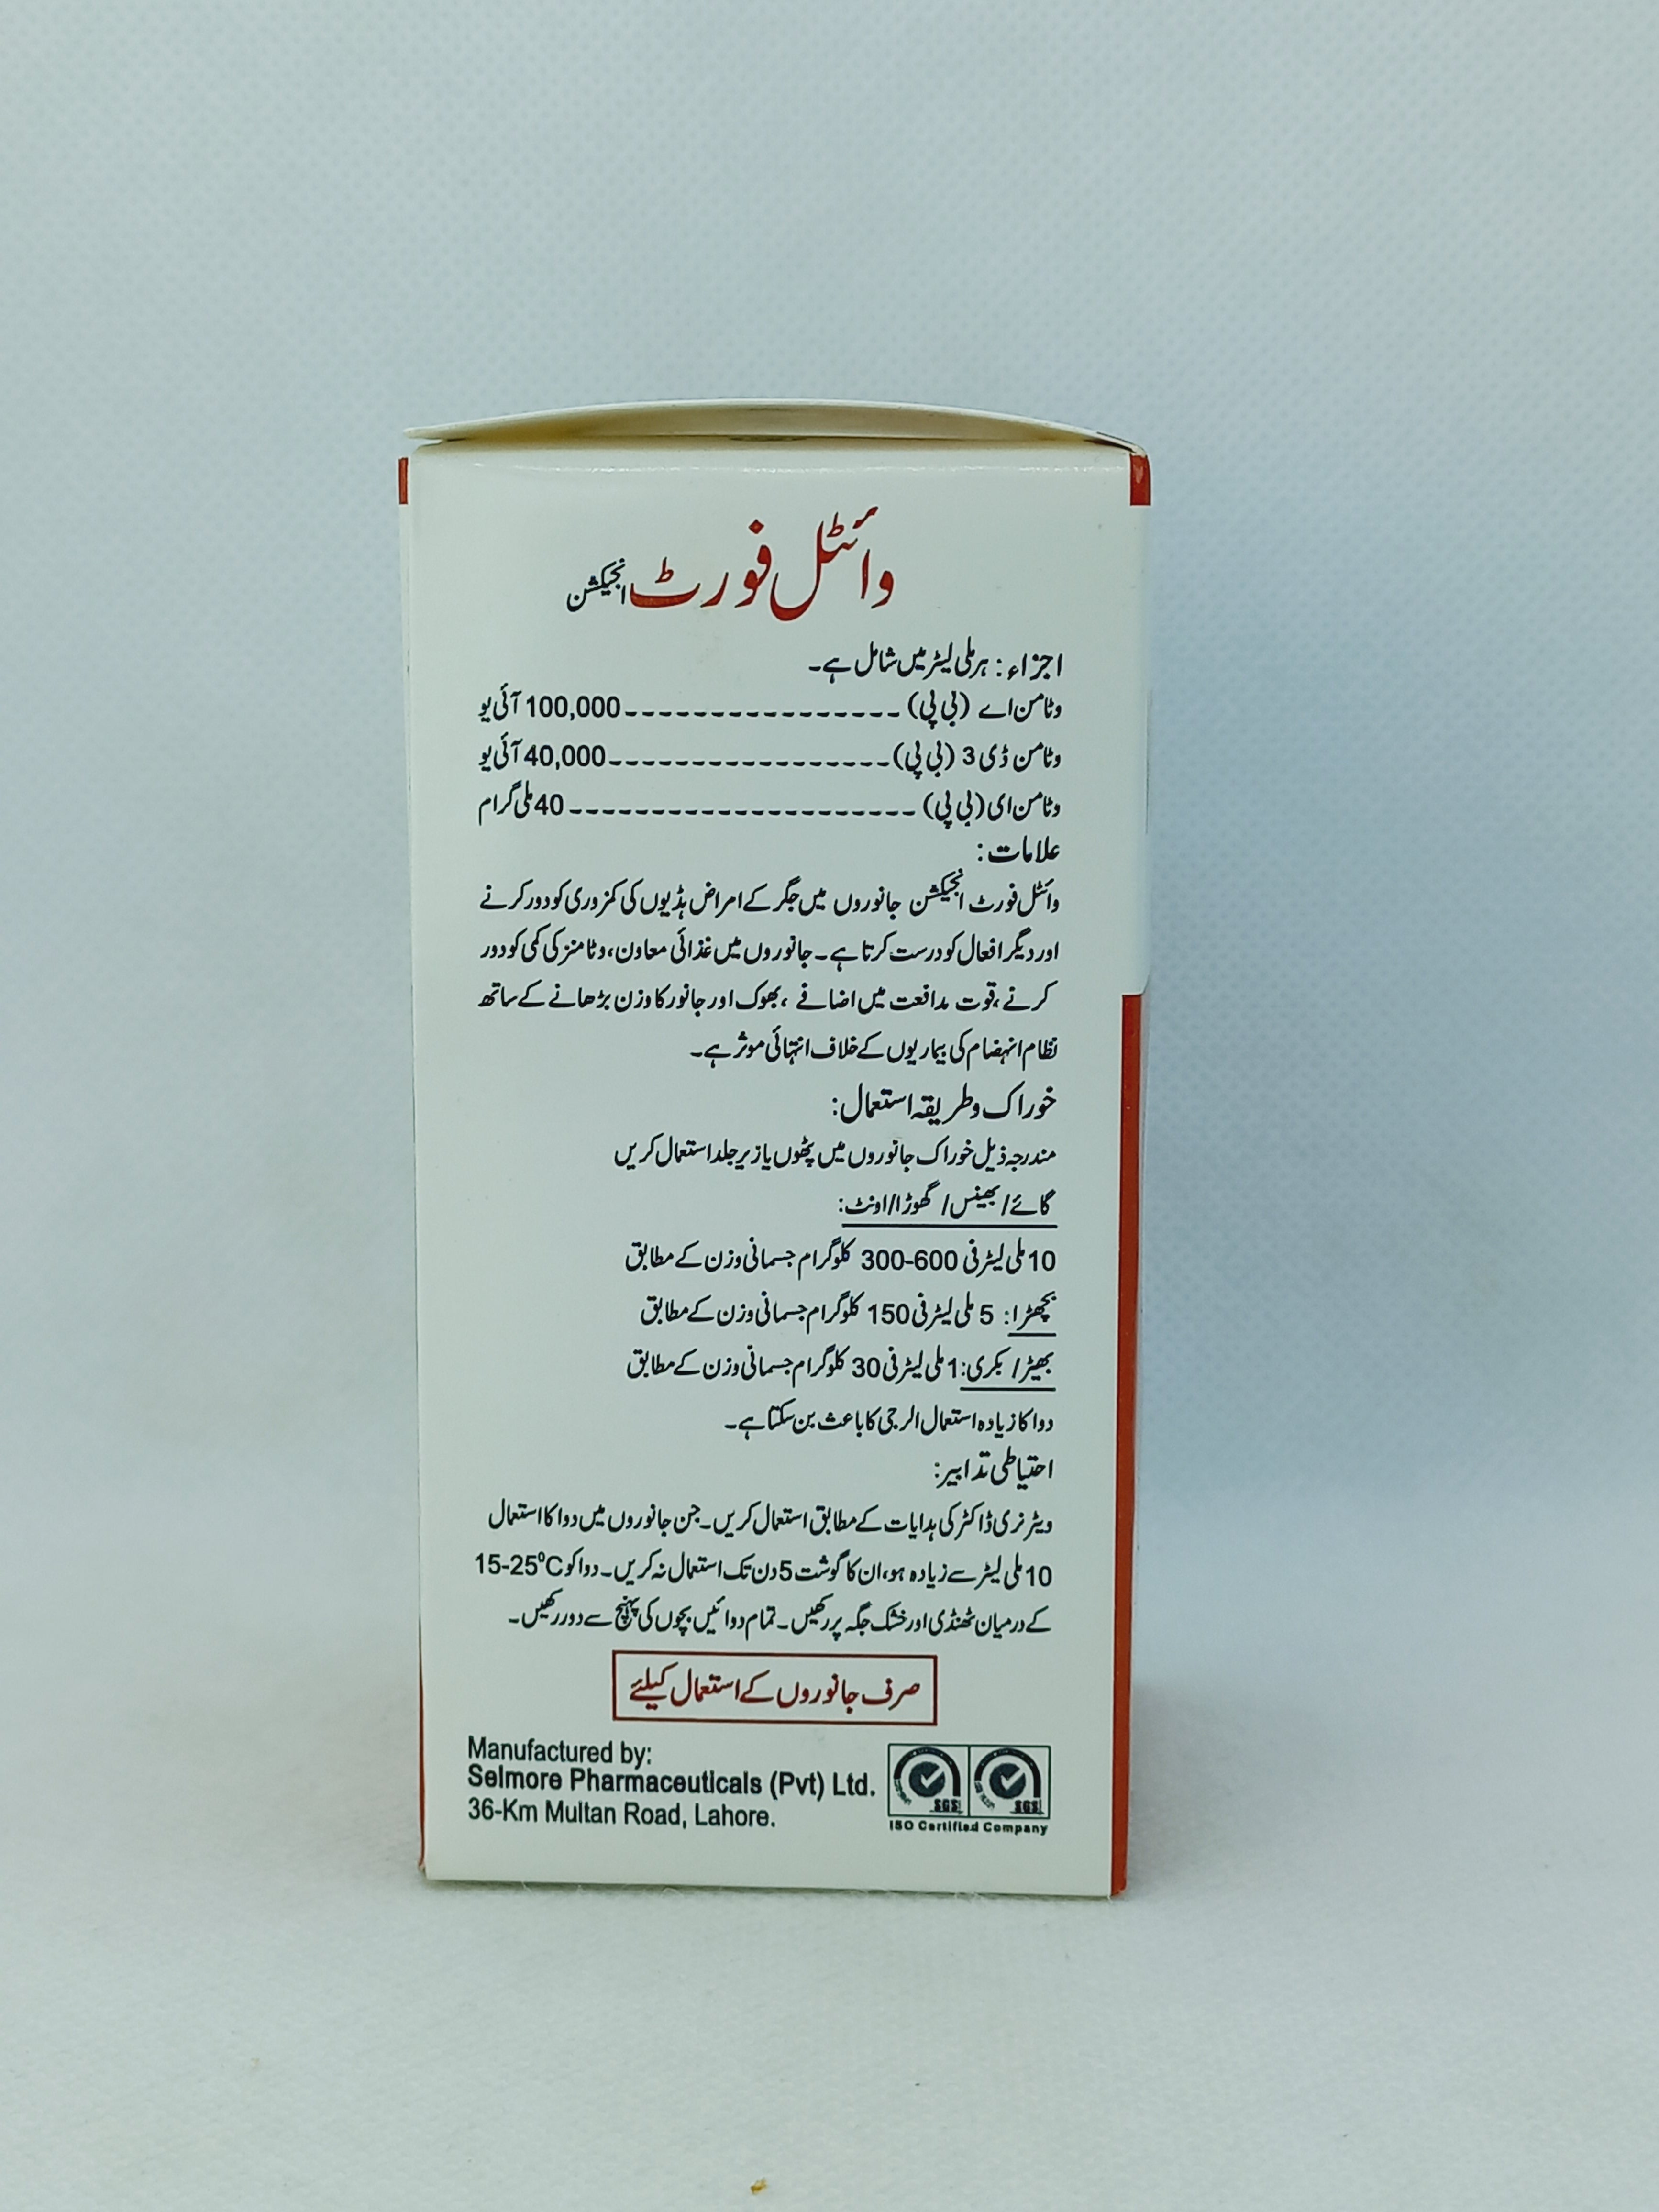 وائٹل فورٹ انجیکشن
اجزاء: ہر ملی لیٹر میں شامل ہے۔
وٹامن اے (بی پی) ---------------- 100,000 آئی یو
وٹامن ڈی 3 (بی پی) ----------------- 40,000 آئی یو
وٹامن ای (بی پی) --------------------- 40 ملی گرام
علامات:
وائٹل فورٹ انجیکشن جانوروں میں جگر کے امراض ہڈیوں کی کمزوری کو دور کرنے
اور دیگر افعال کو درست کرتا ہے۔ جانوروں میں غذائی معاون، وٹامنز کی کمی کو دور
کرنے، قوت مدافعت میں اضافے، بھوک اور جانور کا وزن بڑھانے کے ساتھ
نظام انہضام کی بیماریوں کے خلاف انتہائی موثر ہے۔
خوراک و طریقہ استعمال:
مندرجہ ذیل خوراک جانوروں میں پٹھوں یا زیر جلد استعمال کریں
گائے/ بھینس/ گھوڑا/اونٹ:
10 ملی لیٹر فی 300-600 کلوگرام جسمانی وزن کے مطابق
بچھڑا: 5 ملی لیٹر فی 150 کلوگرام جسمانی وزن کے مطابق
بھیڑ/ بکری: 1 ملی لیٹر فی 30 کلوگرام جسمانی وزن کے مطابق
دوا کا زیادہ استعمال الرجی کا باعث بن سکتا ہے۔
احتیاطی تدابیر:
ویٹرنری ڈاکٹر کی ہدایات کے مطابق استعمال کریں۔ جن جانوروں میں دوا کا استعمال
10 ملی لیٹر سے زیادہ ہو، ان کا گوشت 5 دن تک استعمال نہ کریں۔ دوا کو 15-25°C
کے درمیان ٹھنڈی اور خشک جگہ پر رکھیں۔ تمام دوائیں بچوں کی پہنچ سے دور رکھیں۔
صرف جانوروں کے استعمال کیلئے
Manufactured by:
Selmore Pharmaceuticals (Pvt) Ltd.
36-Km Multan Road, Lahore.
SGS SGS
ISO Certified Company